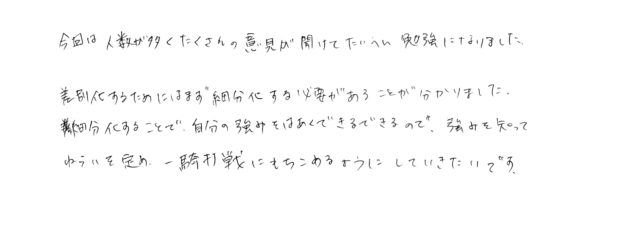 今回は人数が多くたくさんの意見が聞けてたいへん勉強になりました。
差別化するためにはまず細分化する必要があることが分かりました。
細分化することで、自分の強みをはあくできるできるので、強みを知って
ねらいを定め、一騎打戦にもちこめるようにしていきたいです。